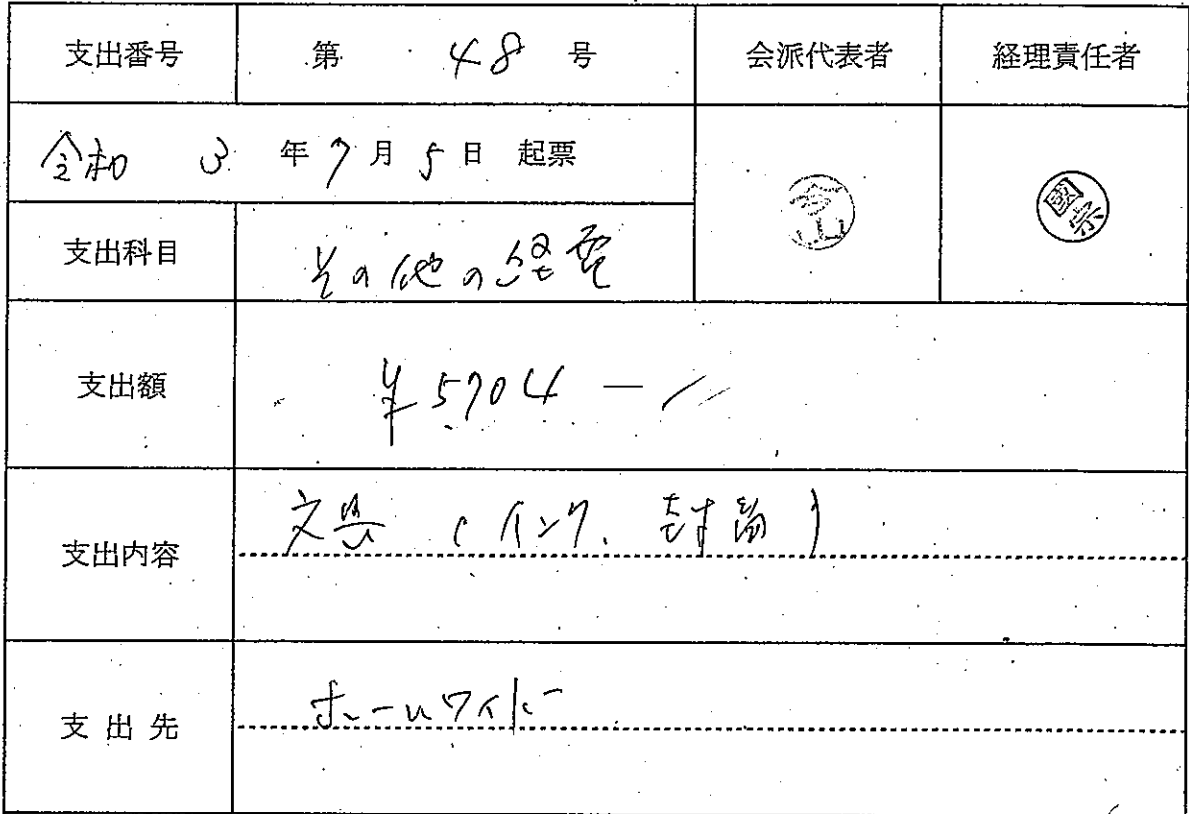 支出番号 第 48 号 会派代表者 経理責任者
令和 3 年 7 月 5 日 起票
今山
國宗
支出科目 その他の経費
支出額 ¥5704-
支出内容 文具 (インク、封筒)
支出先 ホールワイドー